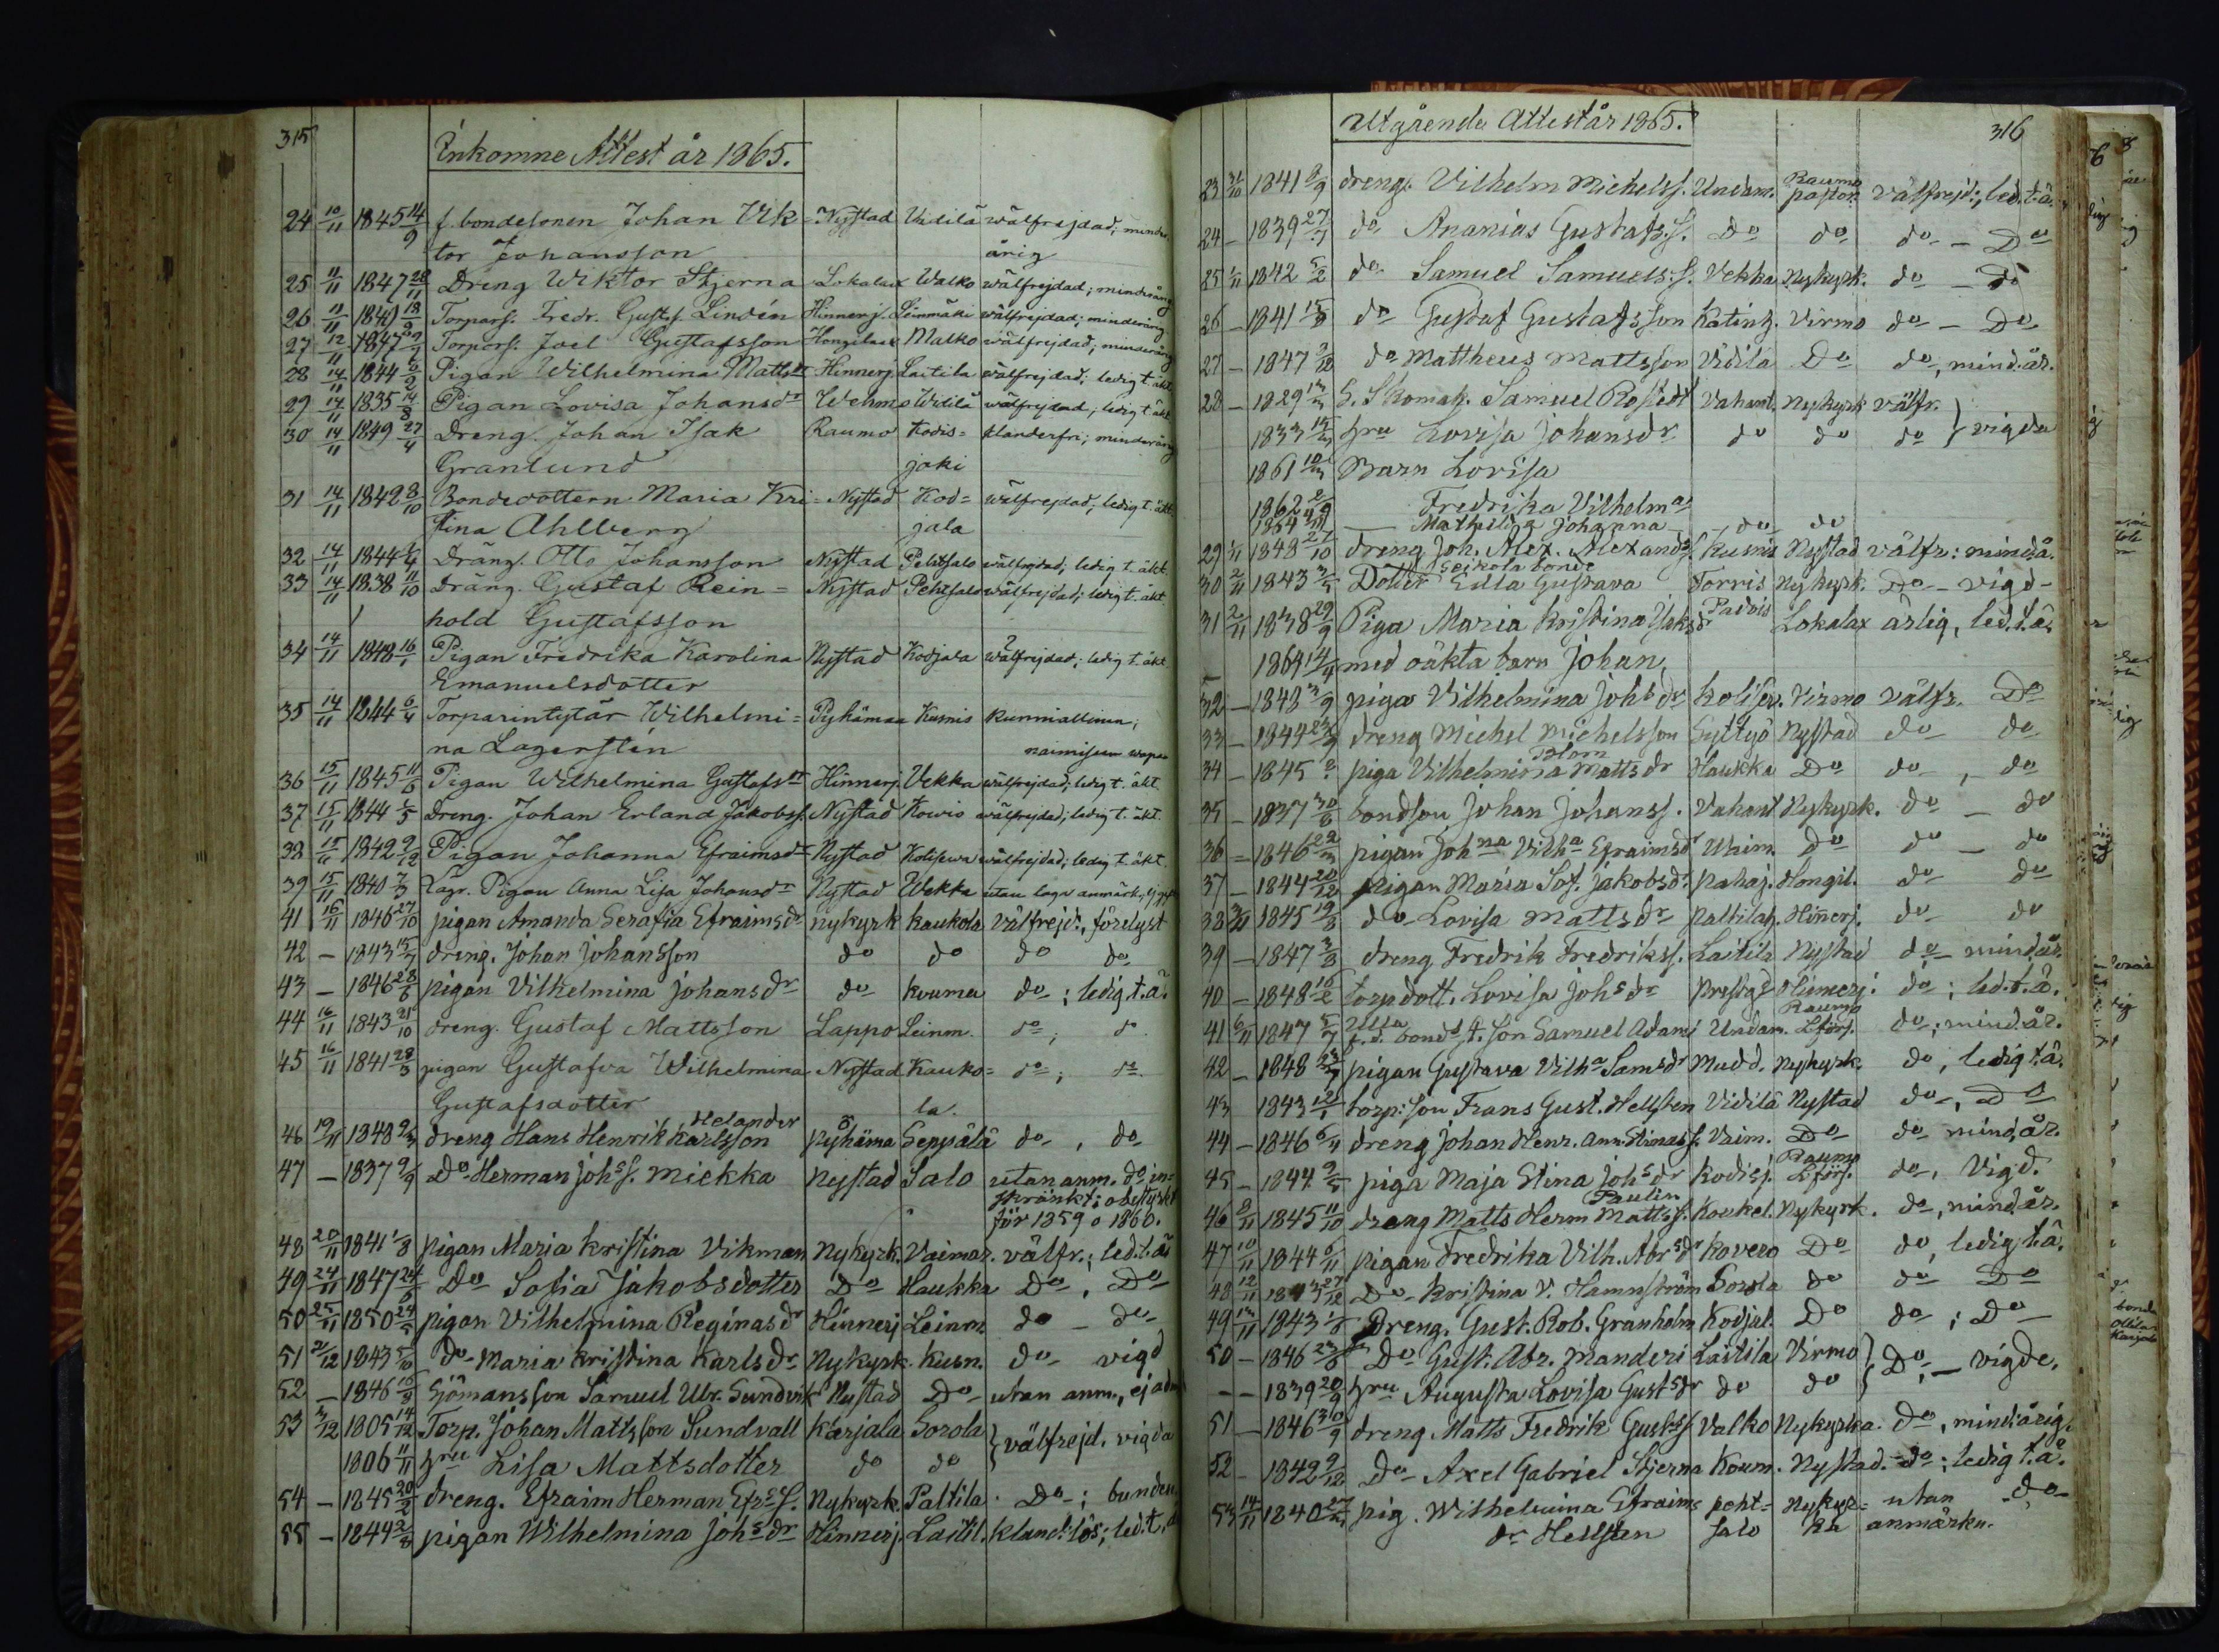 315
Inkomne Attest år 1865.
24 10/11 1845 14/9 f. bondesonen Johan Vik= Nystad Vidilä wälfrejdad; minder
tor Johansson årig
25 11/11 1847 28/11 Dreng Wiktor Stjerna Lokalax Walko wälfrejdad; minderårig
26 11/11 1849 18/2 Torpars. Fredr. Gustaf Lindén Hinnerj. Leinmäki wälfrejdad; minderårig
27 12/11 1847 Torpars. Joel Gustafsson Hongilax Malko wälfrejdad; minderårig
28 14/11 1844 Pigan Wilhelmina Mattsdr Hinnerj. Laitila wälfrejdad; ledig t. äkt.
29 14/11 1835 14/8 Pigan Lovisa Johansdr Wehmo Widilä wälfrejdad; ledig t. äkt.
30 14/11 1849 27/4 Dreng. Johan Isak Raumo Kodis= klanderfri; minderårig
Granlund joki
31 14/11 1842 8/10 Bondedottern Maria Kri= Nystad Kod= wälfrejdad; ledig t. äkt.
stina Ahlberg jala
32 14/11 1844 Dräng. Otto Johansson Nystad Pehtsalo wälfrejdad; ledig t. äkt.
33 14/11 1838 11/10 Dräng. Gustaf Rein= Nystad Pehtsalo wälfrejdad; ledig t. äkt.
hold Gustafsson
34 14/11 1848 16/1 Pigan Fredrika Karolina Nystad Kodjala wälfrejdad; ledig t. äkt.
Emanuelsdotter
35 14/11 1844 6/4 Torparintytär Wilhelmi= Pyhämaa Kusnis kunniallinen;
na Lagerstén naimiseen wapaa
36 15/11 1845 11/6 Pigan Wilhelmina Gustafsdr Hinnerj. Vekka wälfrejdad; ledig t. äkt.
37 15/11 1844 1/5 Dreng. Johan Erland Jakobss. Nystad Kowio wälfrejdad; ledig t. äkt.
38 15/11 1842 9/12 Pigan Johanna Efraimsdr Nystad Kolisewa wälfrejdad; ledig t. äkt.
39 15/11 1840 7/3 Lagr. Pigan Anna Lisa Johansdr Nystad Wekka utan laga anmärk.
41 16/11 1846 27/10 pigan Amanda Serafia Efraimsdr nykyrk kaukola välfrejd:, förelyst
42 – 1843 15/7 dreng. Johan Johansson do do do do
43 – 1846 28/6 pigan Vilhelmina Johansdr do kouma do; ledig t. ä.
44 16/11 1843 21/10 dreng. Gustaf Mattsson Lappo Leinm. do; do
45 16/11 1841 28/3 pigan Gustafva Wilhelmina Nystad Kauko= do; do.
Gustafsdotter la.
Helander
46 19/11 1848 9/3 dreng Hans Henrik Karlsson pyhäma Seppälä do, do
47 – 1837 9/9 Do Herman Johs s. Miekka Nystad Salo utan anm. do in=
skränkt; obestyrkt
för 1859 o 1860.
48 20/11 1841 1/8 pigan Maria Kristina Vikman Nykyrk. Vaimar. välfr.; led. t. äe
49 24/11 1847 24/6 Do Sofia Jakobsdotter Do Haukka Do, Do
50 25/11 1850 24/5 pigan Vilhelmina Reginasdr Hinnerj Leinm. do – do
51 2/12 1843 5/10 do Maria Kristina Karlsdr Nykyrk. Kusn. do vigd
52 – 1846 Sjömansson Samuel Ulr. Sundvik Nystad Do utan anm., ej adm
53 3/12 1805 14/12 Torp. Johan Mattsson Sundvall Karjala Sorola
} välfrejd. vigda
1806 11/11 hru Lisa Mattsdotter do do
54 – 1845 20/2 dreng. Efraim Herman Efrs s. Nykyrk. Paltila Do; bunden
55 – 1844 2/8 pigan Wilhelmina Johsdr Hinnerj. Laitil. kland: lös; led. t. ä
316
Utgående Attest år 1865.
23 31/10 1841 8/9 dreng. Vilhelm Michelss. Undam. Raumo pastor. välfrejd:, led. t. ä.
24 – 1839 27/7 do Ananias Gustafs. s. do do do – Do
25 1/11 1842 5/2 do Samuel Samuels. s. Vekka Nykyrk. do – Do
26 – 1841 do Gustaf Gustafsson Katink. Virmo do – Do
27 – 1847 do Mattheus Mattsson Vidilä Do do, mind. år.
28 – 1829 S. Skomak. Samuel Rostedt Vahant. Nykyrk välfr.
} vigda
1833 hru Lovisa Johansdr do do do
1861 Barn Lovisa
1862 Fredrika Vilhelma
1864 Mathilda Johanna do do
29 1/11 1848 27/10 dreng Joh. Alex. Alexands s. Kusnis Nystad välfr: mind. å.
Seikola bonde
30 2/11 1843 Dotter Edla Gustava Torris Nykyrk. Do – vigd –
31 2/11 1838 29/9 Piga Maria Kristina Isaksdr Padois Lokalax ärlig, led. t. ä.
1864 14/4 med oäkta barn Johan,
32 – 1848 piga Vilhelmina Johsdr Kolisev. Virmo välfr. Do
33 – 1844 dreng Michel Michelsson Syttyö Nystad do do
Blom
34 – 1845 piga Vilhelmina Mattsdr Haukka Do do, – do
35 – 1837 30/8 bondson Johan Johanss. Vahant Nykyrk. do – do
36 – 1846 22/3 pigan Johna Vilha Efraimsdr Uhim. Do do – do
37 – 1844 20/12 pigan Maria Sof. Jakobsdr pahaj. Hongil. do do
38 3/11 1845 19/8 do Lovisa Mattsdr paltilah. Hinerj. do do
39 – 1847 3/8 dreng Fredrik Fredrikss. Laitila Nystad do – mind. år.
40 – 1848 torpdott. Lovisa Johsdr prestgd Hinnerj. do; led. t. ä.
41 6/11 1847 5/7 Ulla f. d. bonds st. son Samuel Adami Undam. Raumo Lförs. do; mind. år.
42 – 1848 pigan Gustava Vilha Samsdr Mudd. Nykyrk. do, ledig t. ä.
43 1843 12/1 torp: son Frans Gust. Hellsten Vidilä Nystad do, Do
44 – 1846 6/11 dreng Johan Henr. Ann. Stinas s. Vaim. Do do mind. år.
45 – 1844 9/5 piga Maja Stina Johsdr Kodisj. Raumo Lförs. do, Vigd.
Paulin
46 8/11 1845 11/10 dreng Matts Herm Mattss. Koukel. Nykyrk. do, mind. år.
47 10/11 1844 pigan Fredrika Vilh. Abrsdr Kovero Do do, ledig t. ä.
48 12/11 1843 27/12 Do Kristina V. Hamnström Sorola do do Do
49 13/11 1843 1/8 Dreng. Gust. Rob. Granholm Kodjal. Do do; Do
50 – 1846 Do Gust. Abr. Manderi Laitila Virmo
} Do, – vigde.
– – 1839 20/9 hru Augusta Lovisa Gustsdr do do
51 – 1846 30/9 dreng Matts Fredrik Gusts s. Valko Nykyrka. do, mind: årig.
52 – 1842 9/12 Do Axel Gabriel Stjerna Koum. Nystad. do; ledig t. ä.
53 14/11 1840 pig. Wilhelmina Efraims peht= Nykyr= utan do
dr Hellsten salo ka anmärkn.